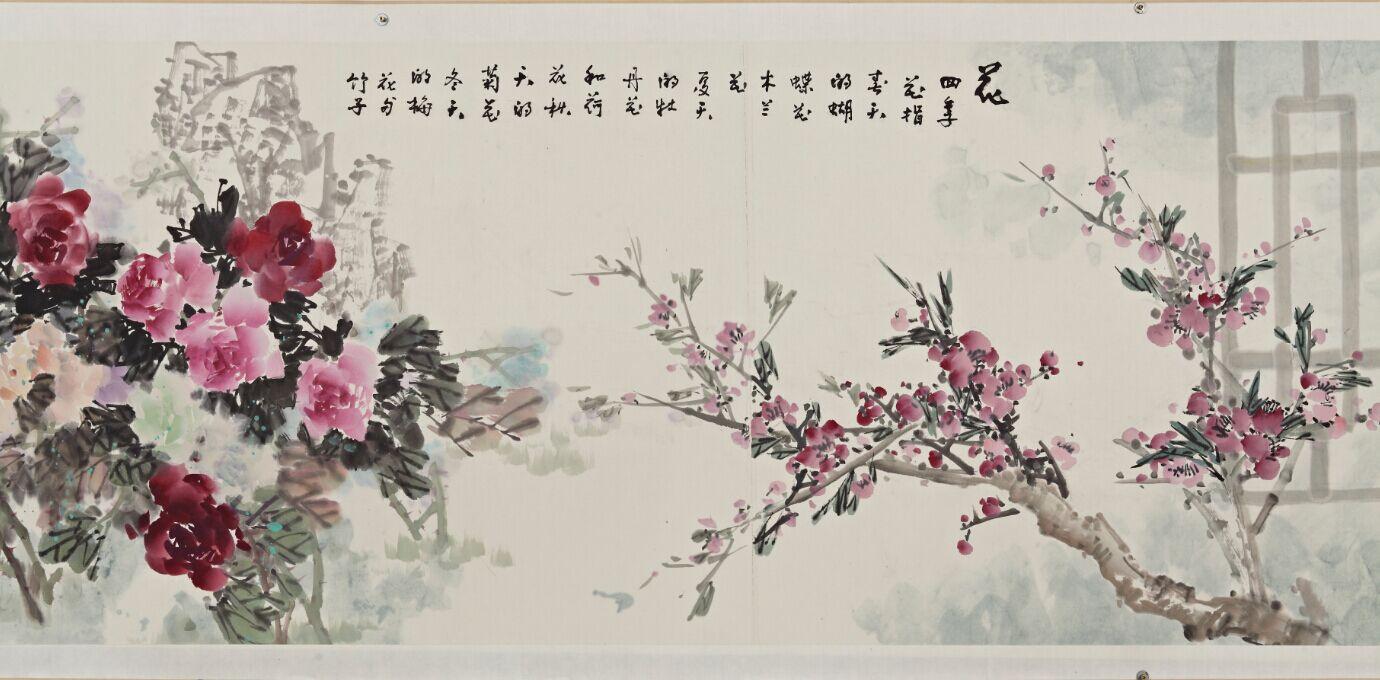 花
四季
花指
春天
的蝴
蝶花
木兰
花
夏天
的牡
丹花
和荷
花秋
天的
菊花
冬天
的梅
花与
竹子